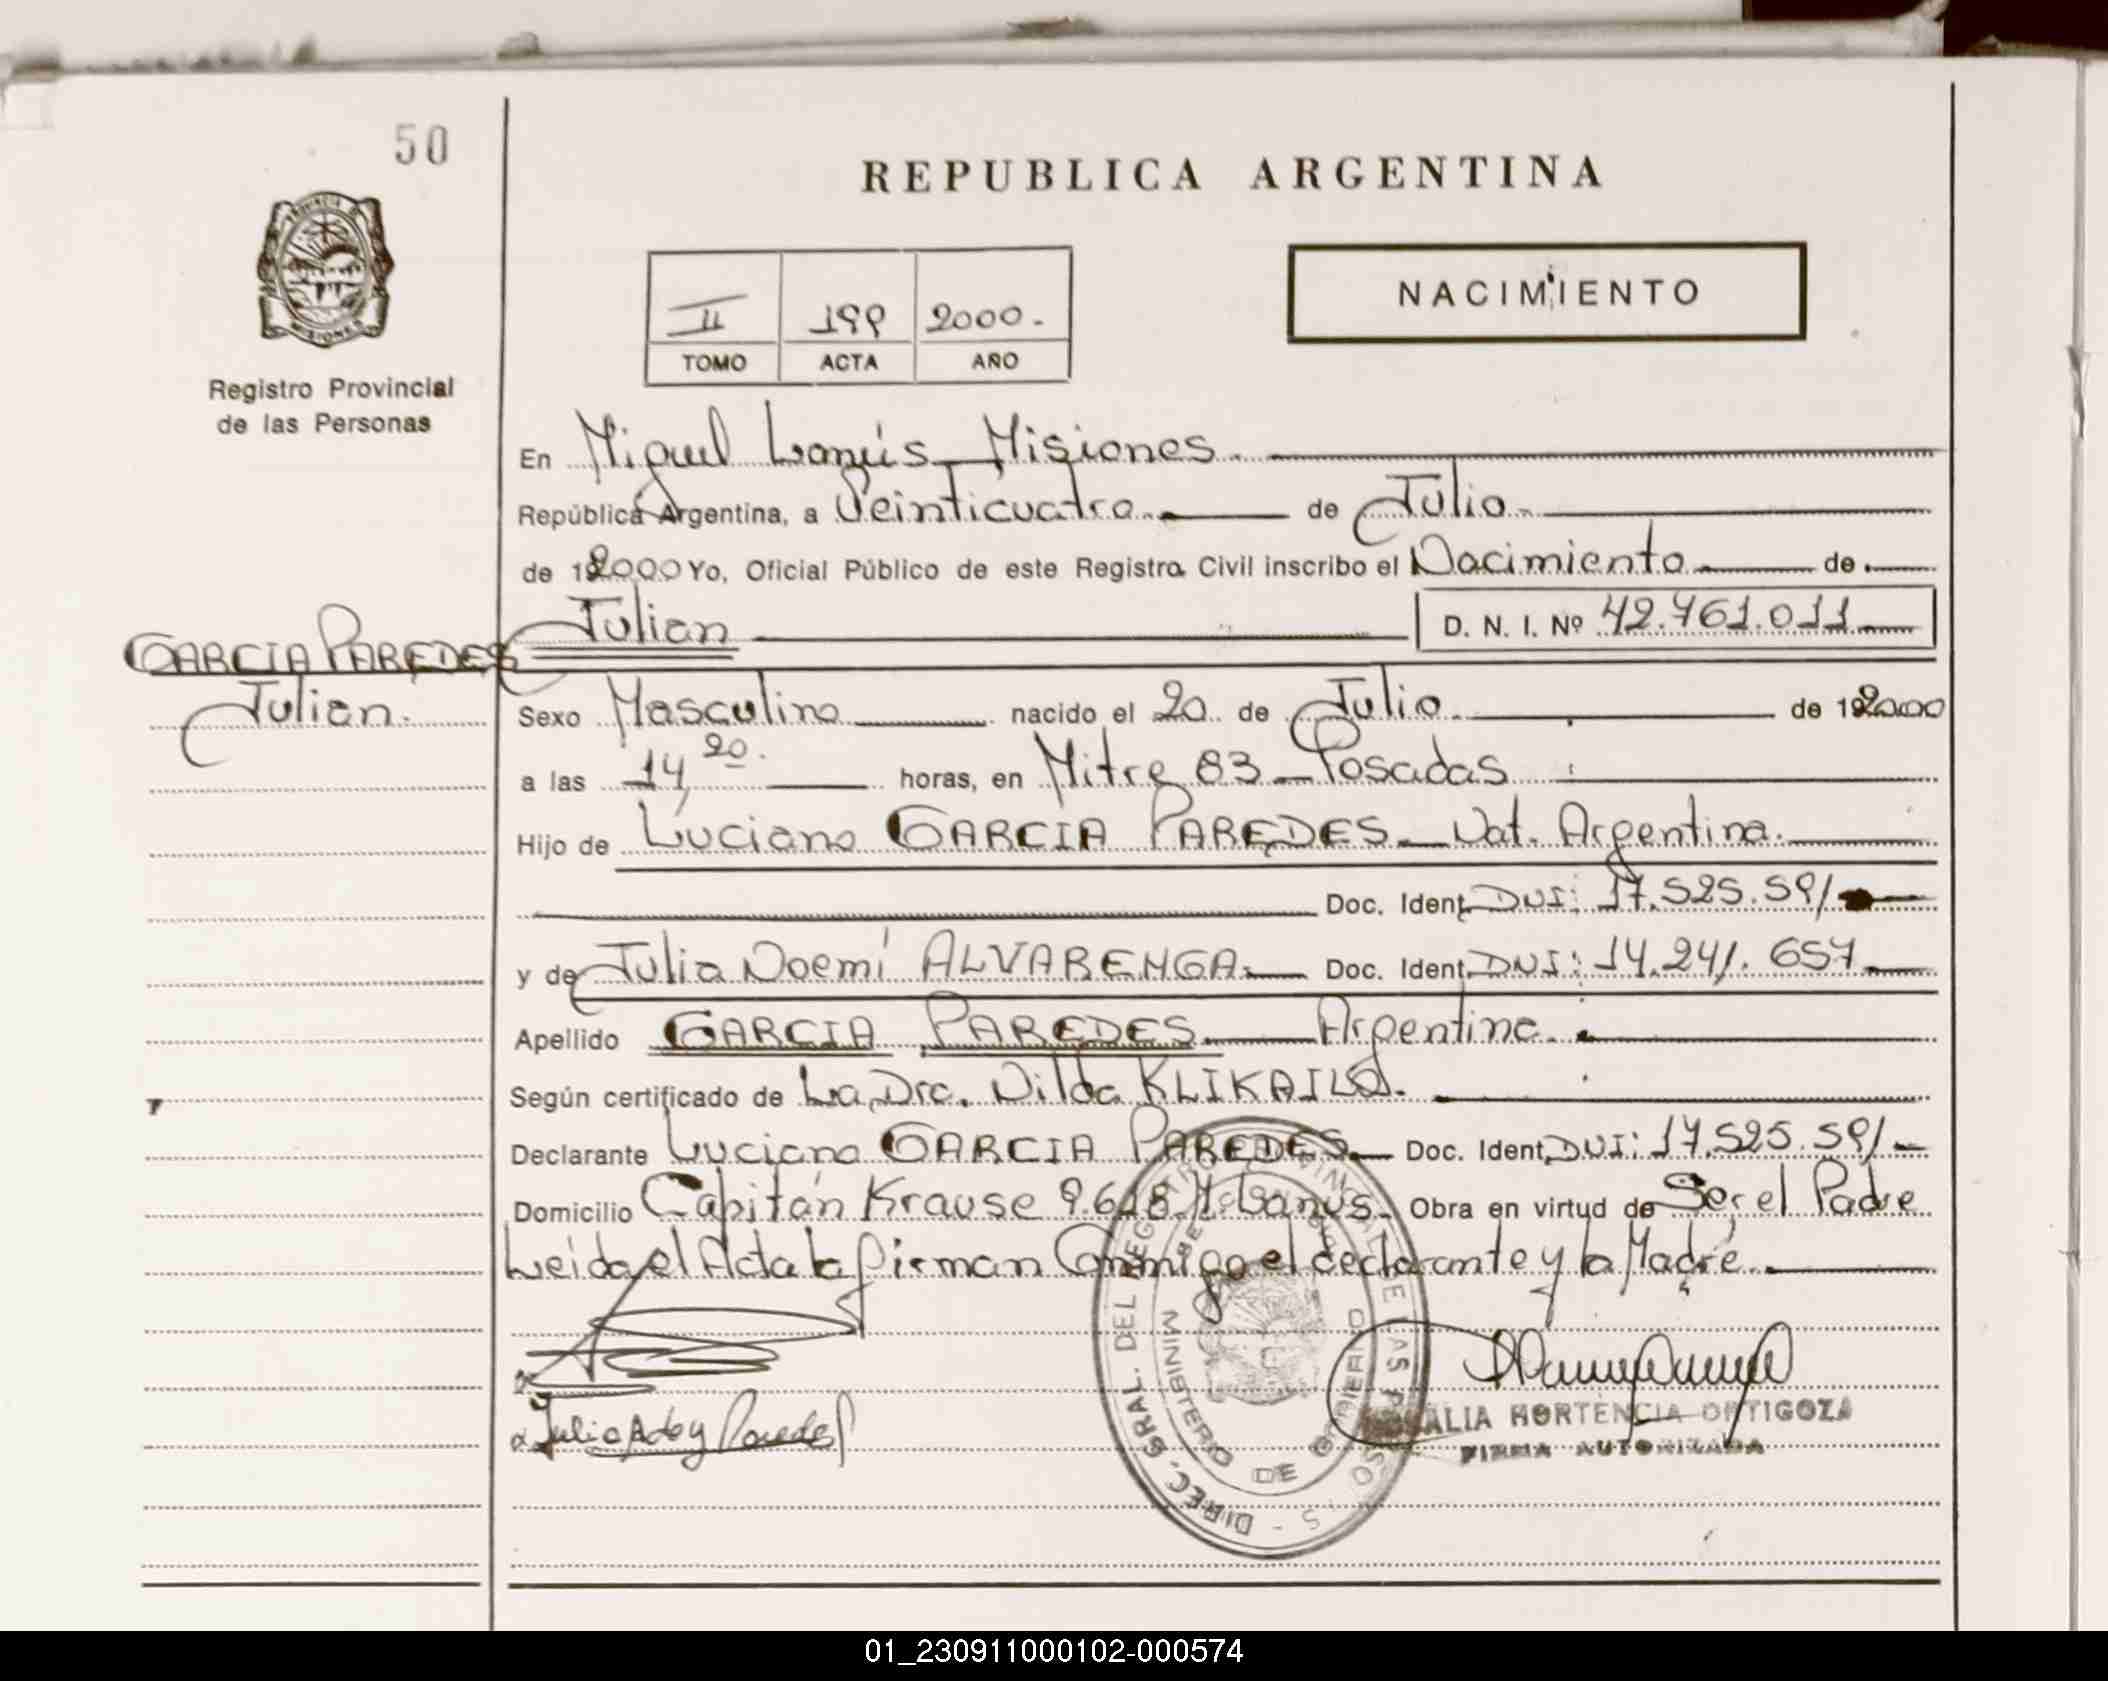 50
REPUBLICA ARGENTINA
PROVINCIA DE
MISIONES
Registro Provincial
de las Personas
II 199 2000.-
TOMO ACTA AÑO
NACIMIENTO
En Miguel Lanús - Misiones.
República Argentina, a Veinticuatro. de Julio.
de 192000 Yo, Oficial Público de este Registro Civil inscribo el Nacimiento de
Julian D. N. I. Nº 42.761.011
GARCIA PAREDES
Julian.
Sexo Masculino nacido el 20 de Julio. de 192000
a las 14,20. horas, en Mitre 83 - Posadas
Hijo de Luciano GARCIA PAREDES - Nat. Argentina.
Doc. Ident. DNI: 17.525.591
y de Julia Noemí ALVARENGA. Doc. Ident. DNI: 14.241.657
Apellido GARCIA PAREDES. Argentina.
Según certificado de La Dra. Nilda KLIKAILO.
Declarante Luciano GARCIA PAREDES. Doc. Ident. DNI: 17.525.591
Domicilio Capitán Krause 9.618 M. Lanus. Obra en virtud de Ser el Padre
Leida el Acta la firman Conmigo el declarante y la Madre.
DIREC. GRAL. DEL REGISTRO PROVINCIAL DE LAS PERSONAS
MINISTERIO DE GOBIERNO
HORTENCIA ORTIGOZA
FIRMA AUTORIZADA
01_230911000102-000574